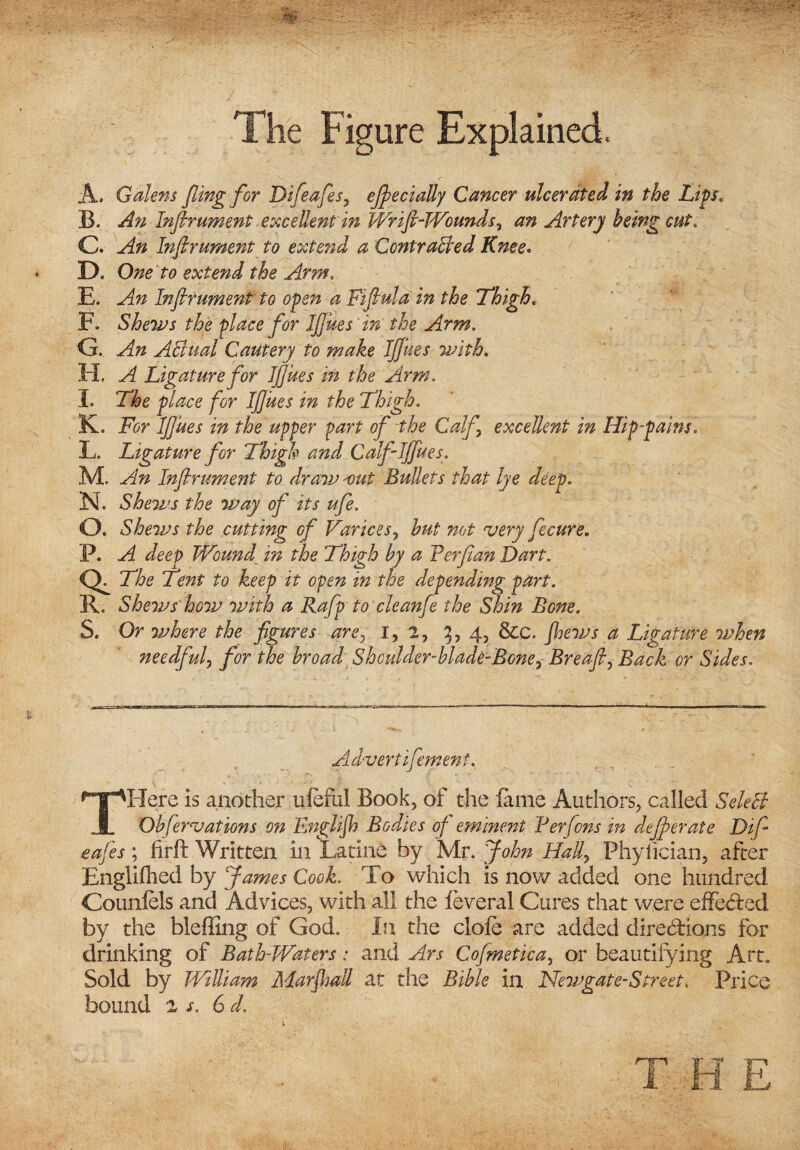 The Figure Explained.
A. Galens ſling for Diſeaſes, eſpecially Cancer ulcerated in the Lips.
B. An Inſtrument excellent in Wriſt-Wounds, an Artery being cut.
C. An Inſtrument to extend a Contracted Knee.
D. One to extend the Arm.
E. An Inſtrument to open a Fiſtula in the Thigh.
F. Shews the place for Iſſues in the Arm.
G. An Actual Cautery to make Iſſues with.
H. A Ligature for Iſſues in the Arm.
I. The place for Iſſues in the Thigh.
K. For Iſſues in the upper part of the Calf, excellent in Hip-pains.
L. Ligature for Thigh and Calf-Iſſues.
M. An Inſtrument to draw out Bullets that lye deep.
N. Shews the way of its uſe.
O. Shews the cutting of Varices, but not very ſecure.
P. A deep Wound in the Thigh by a Perſian Dart.
Q. The Tent to keep it open in the depending part.
R. Shews how with a Raſp to cleanſe the Shin Bone.
S. Or where the figures are, 1, 2, 3, 4, &c. ſhews a Ligature when
needful, for the broad Shoulder-blade-Bone, Breaſt, Back or Sides.
Advertiſement.
THere is another uſeful Book, of the ſame Authors, called Select
Obſervations on Engliſh Bodies of eminent Perſons in deſperate Diſ-
eaſes; firſt Written in Latine by Mr. John Hall, Phyſician, after
Engliſhed by James Cook. To which is now added one hundred
Counſels and Advices, with all the ſeveral Cures that were effected
by the bleſſing of God. In the cloſe are added directions for
drinking of Bath-Waters: and Ars Coſmetica, or beautifying Art.
Sold by William Marſhall at the Bible in Newgate-Street. Price
bound 2 s. 6 d.
THE